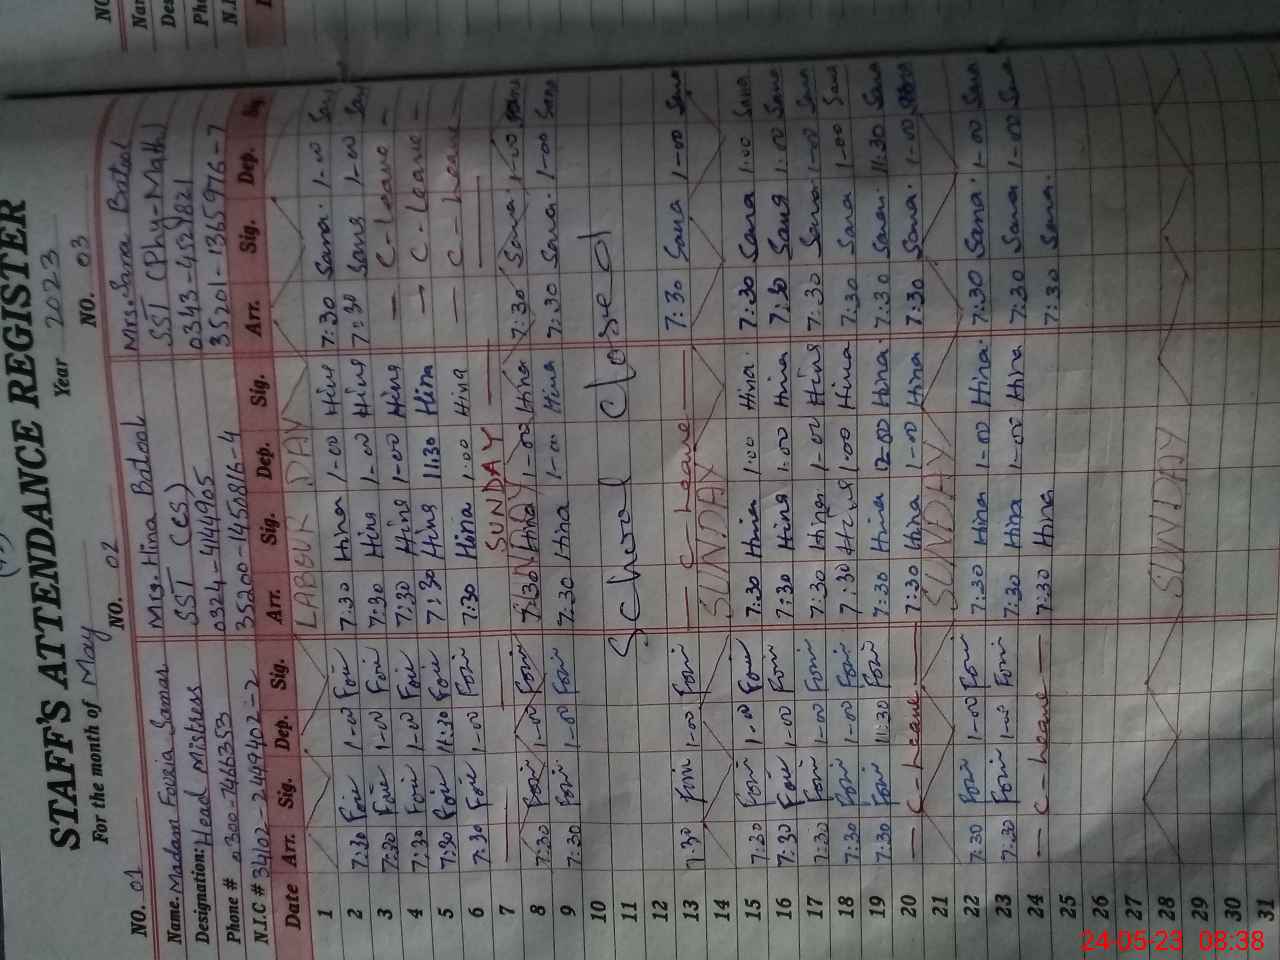 STAFF'S ATTENDANCE REGISTER
For the month of May Year 2023
NO. 01 NO. 02 NO. 03
Name. Madam Fouzia Samar Mrs. Hina Batool Mrs. Sara Batool
Designation: Head Mistress SST (CS) SST (Phy-Math)
Phone # 0300-7466353 0324-4144905
N.I.C # 35200-1455816-4 35201-1365976-7
Date Arr. Sig. Dep. Sig. Arr. Sig. Dep. Sig. Arr. Sig. Dep. Sig.
1 LABOUR DAY
2 7:30 Fozi 1-00 Fozi 7:30 Hina 1-00 Hina 7:30 Sana 1-00 Sana
3 7:30 Fozi 1-00 Fozi 7:30 Hina 1-00 Hina 7:30 Sana 1-00 Sana
4 7:30 Fozi 1-00 Fozi 7:30 Hina 1-00 Hina C-Leave
5 7:30 Fozi 11:30 Fozi 7:30 Hina 11:30 Hina C-Leave
6 7:30 Fozi 1-00 Fozi 7:30 Hina 1.00 Hina C-Leave
7 SUNDAY
8 7:30 Fozi 1-00 Fozi 7:30 Hina 1-00 Hina 7:30 Sana 1-00 Sana
9 7:30 Fozi 1-00 Fozi 7:30 Hina 1-00 Hina 7:30 Sana 1-00 Sana
10
11 School Closed
12
13 7:30 Fozi 1-00 Fozi C-Leave 7:30 Sana 1-00 Sana
14 SUNDAY
15 7:30 Fozi 1-00 Fozi 7:30 Hina 1.00 Hina 7:30 Sana 1.00 Sana
16 7:30 Fozi 1-00 Fozi 7:30 Hina 1.00 Hina 7:30 Sana 1.00 Sana
17 7:30 Fozi 1-00 Fozi 7:30 Hina 1-00 Hina 7:30 Sana 1-00 Sana
18 7:30 Fozi 1-00 Fozi 7:30 Hina 1.00 Hina 7:30 Sana 1-00 Sana
19 7:30 Fozi 11:30 Fozi 7:30 Hina 12-00 Hina 7:30 Sana 11:30 Sana
20 C-Leave 7:30 Hina 1-00 Hina 7:30 Sana 1-00 Sana
21 SUNDAY
22 7:30 Fozi 1-00 Fozi 7:30 Hina 1-00 Hina 7:30 Sana 1-00 Sana
23 7:30 Fozi 1-00 Fozi 7:30 Hina 1-00 Hina 7:30 Sana 1-00 Sana
24 C-Leave 7:30 Hina 7:30 Sana
25
26
27
28 SUNDAY
29
30
31
24-05-23 08:38